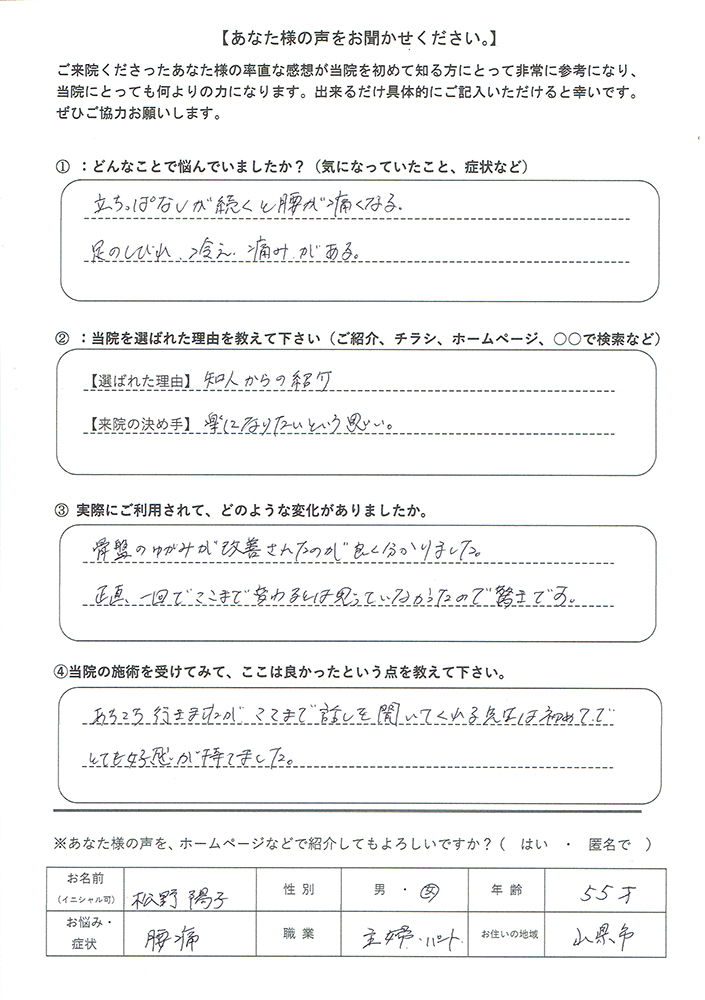 【あなた様の声をお聞かせください。】
ご来院くださったあなた様の率直な感想が当院を初めて知る方にとって非常に参考になり、
当院にとっても何よりの力になります。出来るだけ具体的にご記入いただけると幸いです。
ぜひご協力お願いします。
① ：どんなことで悩んでいましたか？（気になっていたこと、症状など）
立ちっぱなしが続くと腰が痛くなる。
足のしびれ、冷え、痛みがある。
② ：当院を選ばれた理由を教えて下さい（ご紹介、チラシ、ホームページ、〇〇で検索など）
【選ばれた理由】知人からの紹介
【来院の決め手】楽になりたいという思い。
③ 実際にご利用されて、どのような変化がありましたか。
骨盤のゆがみが改善されたのが良く分かりました。
正直、一回でここまで変わるとは思っていなかったので驚きです。
④当院の施術を受けてみて、ここは良かったという点を教えて下さい。
あちこち行きますがここまで話しを聞いてくれる先生は初めてで
とても好感が持てました。
※あなた様の声を、ホームページなどで紹介してもよろしいですか？（　はい　・　匿名で　）
お名前（イニシャル可） 松野 陽子 性別 男・女 年齢 55才
お悩み・症状 腰痛 職業 主婦・パート お住いの地域 山県市